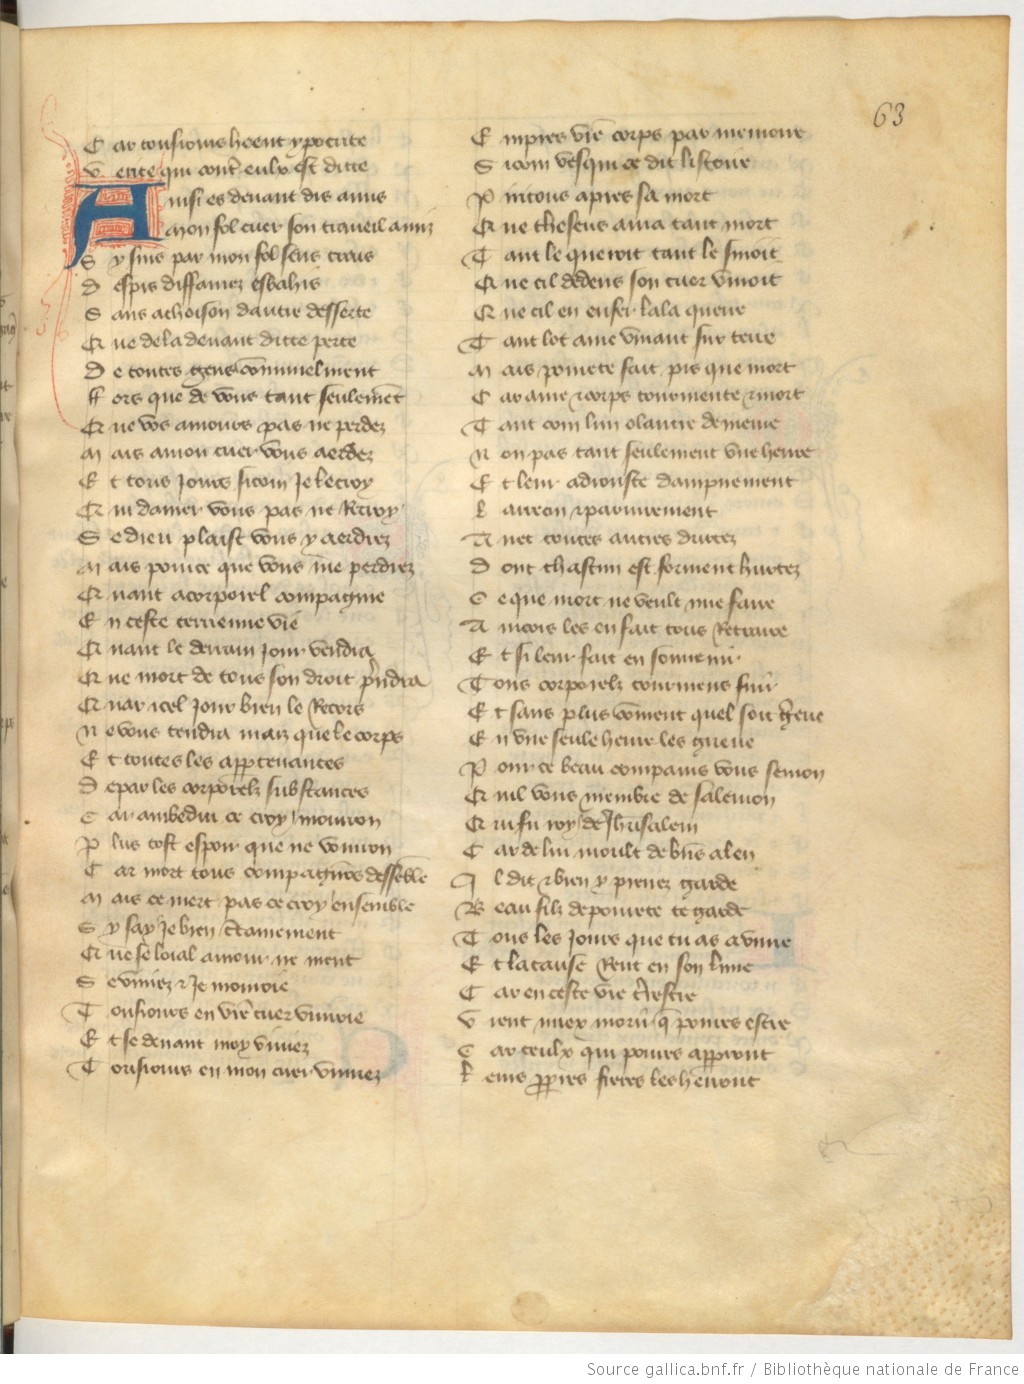 63
Car tousiours heent ypocrite
Verite qui contre eulx est ditte
Ainsi es deuant dis amis
A mon fol cuer son traueil a mis
Sy suis par mon fol sens trais
Despis diffamez esbahis
Sans achoison dautre desserte
Que de la deuant ditte perte
De toutes gens communelment
Fors que de vous tant seulement
Que vos amours pas ne perdez
Mais a mon cuer vous aerdez
Et tous Jours sicom Je le croy
Qui damer vous pas ne Recroy
Se dieu plaist vous y aerdrez
Mais pource que vous me perdrez
Quant a corporel compagnie
En ceste terrienne vie
Quant le derrain Jour vendra
Que mort de tous son droit prendra
Quar icel Jour bien le Recors
Ne vous tendra maiz que le corps
Et toutes les appartenances
De par les corporelz substances
Car ambedui ce croy mouiron
Plus tost espoir que ne vouiron
Car mort tous compagnons dessemble
Mais ce niert pas ce croy ensemble
Sy say Je bien certainement
Que se loial amour ne ment
Se viuiez et Je mouroie
Tousiours en vostre cuer viuroie
Et se deuant moy viuiez
Tousiours en mon cuer viuiez
Empres vie corps par memoire
Sicom vesqui ce dit listoire
Piritous apres sa mort
Que theseus ama tant mort
Tant le queroit tant le siuoit
Que cil dedens son cuer viuoit
Que cil en enfer lala querre
Tant lot ame viuant sur terre
Mais pourete fait pis que mort
Car ame et corps tourmente et mort
Tant com lun o lautre demeure
Non pas tant seulement vne heure
Et leur adiouste dampnement
Larrecin et pariurement
Auec toutes autres durtez
Dont chascun est forment hurtez
Ce que mort ne veult mie faire
Aincois les en fait tous Retraire
Et si leur fait en son venir
Tous corporelz tourmens finir
Et sans plus comment quel soit griefue
En vne seule heure les grieue
Pour ce beau compains vous semon
Quil vous membre de salemon
Qui fu roy de Jherusalem
Car de lui moult de biens a len
Il dit et bien y prenez garde
Beau filz de pourete te garde
Tous les Jours que tu as a viure
Et la cause Rent en son liure
Car en ceste vie terrestre
Vient miex morir que poures estre
Car ceulx qui poures apperront
Leurs propres freres les herront
Source gallica.bnf.fr / Bibliothèque nationale de France